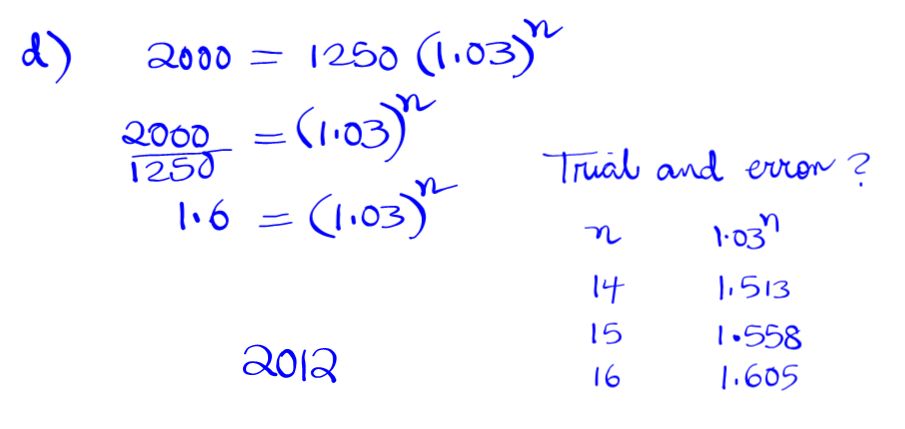 d) 2000 = 1250 (1.03)^n
2000/1250 = (1.03)^n
1.6 = (1.03)^n
2012
Trial and error?
n 1.03^n
14 1.513
15 1.558
16 1.605